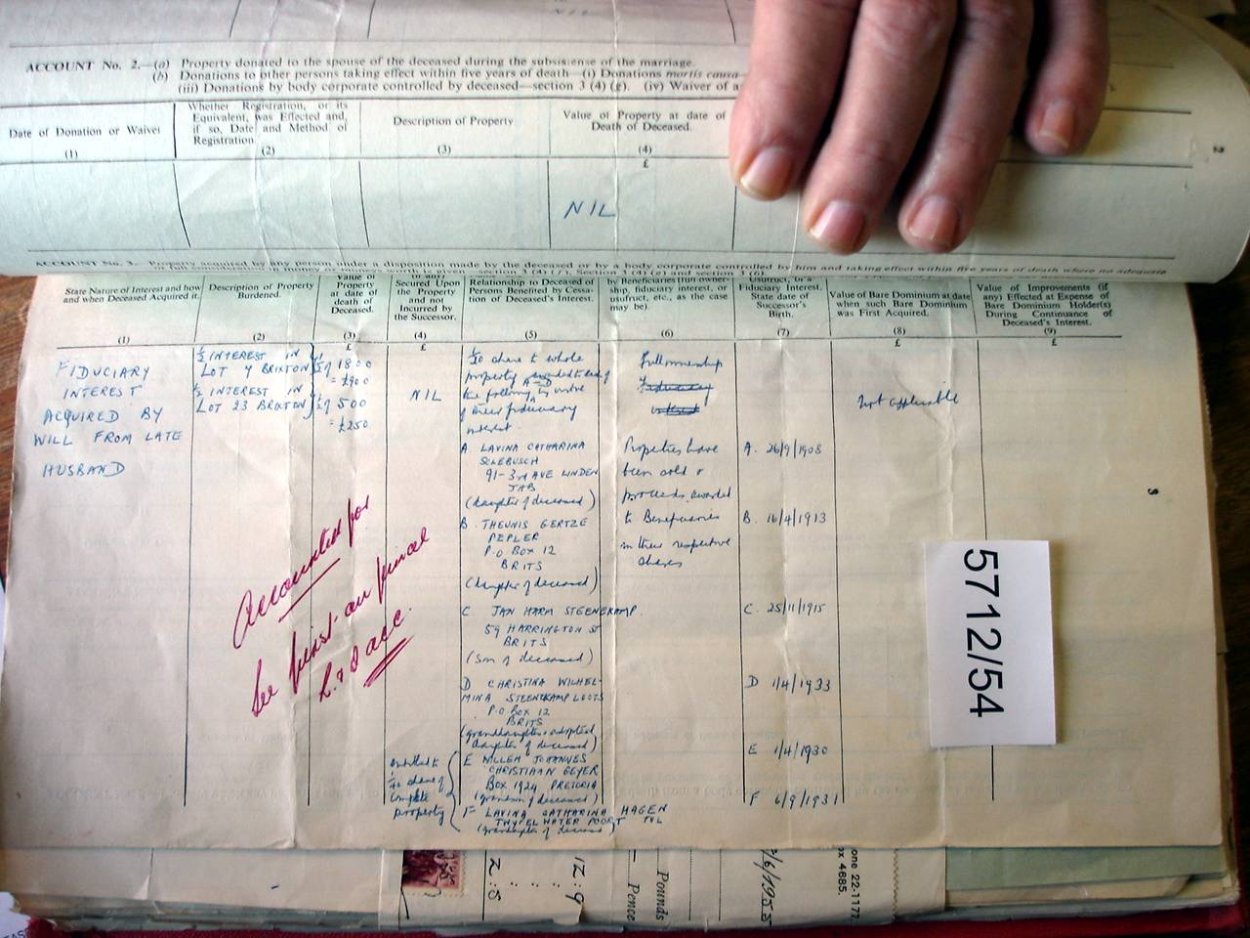 NIL
ACCOUNT No. 2.—(a) Property donated to the spouse of the deceased during the subsistence of the marriage.
(b) Donations to other persons taking effect within five years of death—(i) Donations mortis causa—
(iii) Donations by body corporate controlled by deceased—section 3 (4) (g). (iv) Waiver of a
Date of Donation or Waiver
(1)
Whether Registration, or its
Equivalent, was Effected and,
if so, Date and Method of
Registration.
(2)
Description of Property
(3)
Value of Property at date of
Death of Deceased.
(4)
£
2
NIL
ACCOUNT No. 3. Property acquired by any person under a disposition made by the deceased or by a body corporate controlled by him and taking effect within five years of death where no adequate
State Nature of Interest and how
and when Deceased Acquired it.
(1)
Description of Property
Burdened.
(2)
Value of
Property
at date of
death of
Deceased.
(3)
£
Secured Upon
the Property
and not
Incurred by
the Successor.
(4)
£
Relationship to Deceased of
Persons Benefited by Cessa-
tion of Deceased's Interest.
(5)
by Beneficiaries
ship, fiduciary interest, or
usufruct, etc., as the case
may be).
(6)
Fiduciary Interest.
State date of
Successor's
Birth.
(7)
Value of Bare Dominium at date
when such Bare Dominium
was First Acquired.
(8)
£
Value of Improvements (if
any) Effected at Expense of
Bare Dominium Holder(s)
During Continuance of
Deceased's Interest.
(9)
£
FIDUCIARY
INTEREST
ACQUIRED BY
WILL FROM LATE
HUSBAND
½ INTEREST IN
LOT 4 BRIXTON
½ INTEREST IN
LOT 23 BRIXTON
½ of 1800
= £900
½ of 500
= £250
NIL
1/10 share to whole
property awarded to each of
the following A-D by virtue
of their fiduciary
interest.
A LAVINA CATHARINA
SCLEBUSCH
91-3rd AVE LINDEN
JHB
(daughter of deceased)
B. THEUNIS GERTZE
PEPLER
P.O BOX 12
BRITS
(daughter of deceased)
C JAN HARM STEENEKAMP
59 HARRINGTON ST
BRITS
(Son of deceased)
D CHRISTINA WILHEL-
MINA STEENEKAMP LOOTS
P.O. BOX 12
BRITS
(granddaughter + adopted
daughter of deceased)
E WILLEM JOHANNES
CHRISTIAAN GEYER
BOX 1924 PRETORIA
(grandson of deceased)
F LAVINA CATHARINA HAGEN
WATER POORT TVL
(granddaughter of deceased)
entitled to
share of
complete
property
Full ownership
Fiduciary
interest
Properties have
been sold &
proceeds awarded
to Beneficiaries
in their respective
shares
A. 26/9/1908
B. 16/4/1913
C. 25/11/1915
D 1/4/1933
E 1/4/1930
F 6/9/1931
Not applicable
Accounted for
See first and final
L. & D acc.
3
5712/54
12:9
2:5
Pounds
Pence
/6/1955
one 22-1177
ox 4685.